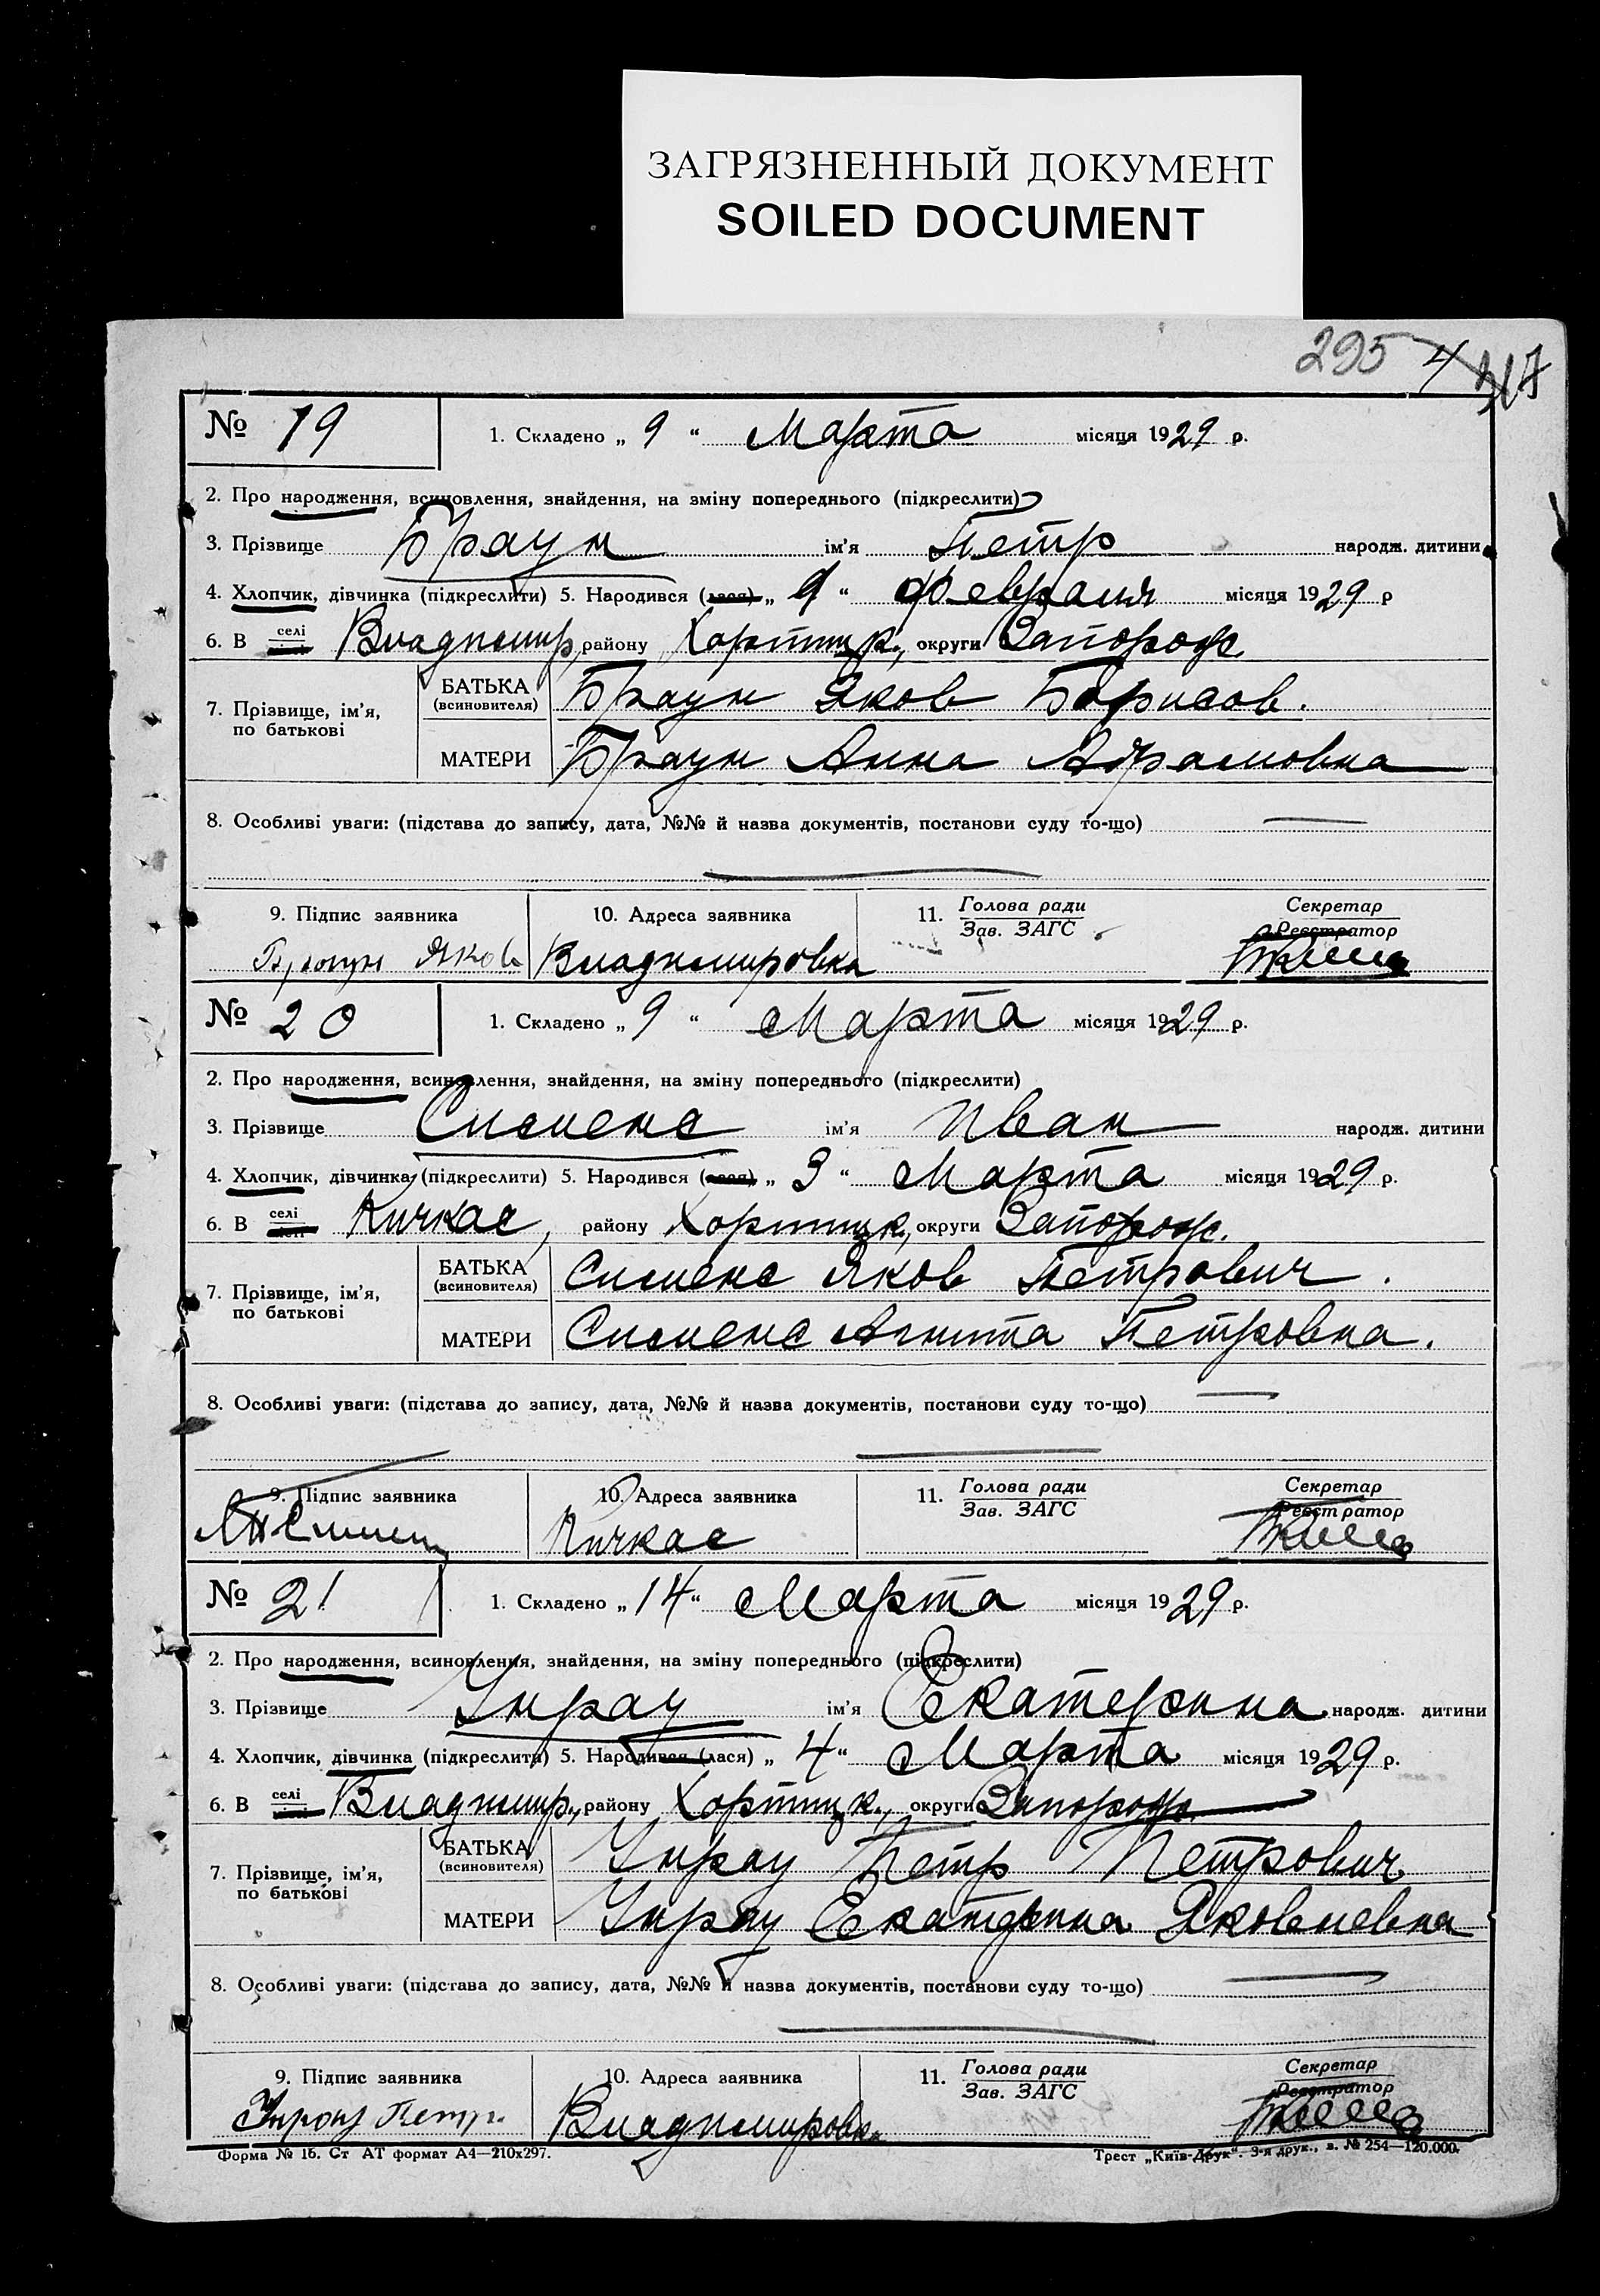 ЗАГРЯЗНЕННЫЙ ДОКУМЕНТ
SOILED DOCUMENT
295 4 317
№ 19 1. Складено „ 9 “ Марта місяця 1929 р.
2. Про народження, всиновлення, знайдення, на зміну попереднього (підкреслити)
3. Прізвище Браун ім’я Петр народж. дитини
4. Хлопчик, дівчинка (підкреслити) 5. Народився (лася) „ 9 “ Февраля місяця 1929 р
6. В селі Владимир, району Хортицк., округи Запорож.
7. Прізвище, ім’я, по батькові БАТЬКА (всиновителя) Браун Яков Борисов.
МАТЕРИ Браун Анна Абрамовна
8. Особливі уваги: (підстава до запису, дата, №№ й назва документів, постанови суду то-що)
9. Підпис заявника 10. Адреса заявника 11. Голова ради Секретар
Зав. ЗАГС Реєстратор
Браун Яков Владимировка
№ 20 1. Складено „ 9 “ Марта місяця 1929 р.
2. Про народження, всиновлення, знайдення, на зміну попереднього (підкреслити)
3. Прізвище Сименс ім’я Иван народж. дитини
4. Хлопчик, дівчинка (підкреслити) 5. Народився (лася) „ 3 “ Марта місяця 1929 р.
6. В селі Кичкас, району Хортицк., округи Запорож.
7. Прізвище, ім’я, по батькові БАТЬКА (всиновителя) Сименс Яков Петрович.
МАТЕРИ Сименс Агнита Петровна.
8. Особливі уваги: (підстава до запису, дата, №№ й назва документів, постанови суду то-що)
9. Підпис заявника 10. Адреса заявника 11. Голова ради Секретар
Зав. ЗАГС Реєстратор
Кичкас
№ 21 1. Складено „ 14 “ Марта місяця 1929 р.
2. Про народження, всиновлення, знайдення, на зміну попереднього (підкреслити)
3. Прізвище Унрау ім’я Екатерина народж. дитини
4. Хлопчик, дівчинка (підкреслити) 5. Народився (лася) „ 4 “ Марта місяця 1929 р.
6. В селі Владимир., району Хортицк., округи Запорож.
7. Прізвище, ім’я, по батькові БАТЬКА (всиновителя) Унрау Петр Петрович
МАТЕРИ Унрау Екатерина Яковлевна
8. Особливі уваги: (підстава до запису, дата, №№ й назва документів, постанови суду то-що)
9. Підпис заявника 10. Адреса заявника 11. Голова ради Секретар
Зав. ЗАГС Реєстратор
Унрау Петр. Владимировка
Форма № 1б. Ст АТ формат А4—210х297. Трест „Київ-Друк“. 3-я друк., з. № 254—120.000.